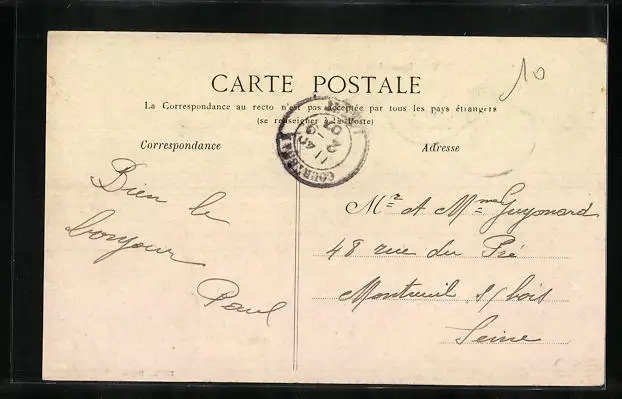 10
CARTE POSTALE
La Correspondance au recto n'est pas acceptée par tous les pays étrangers
(se renseigner à la Poste)
Correspondance
Adresse
Bien le
bonjour
Paul
Mr et Mme Guyonard
48 rue du Pré
Montreuil s/ bois
Seine